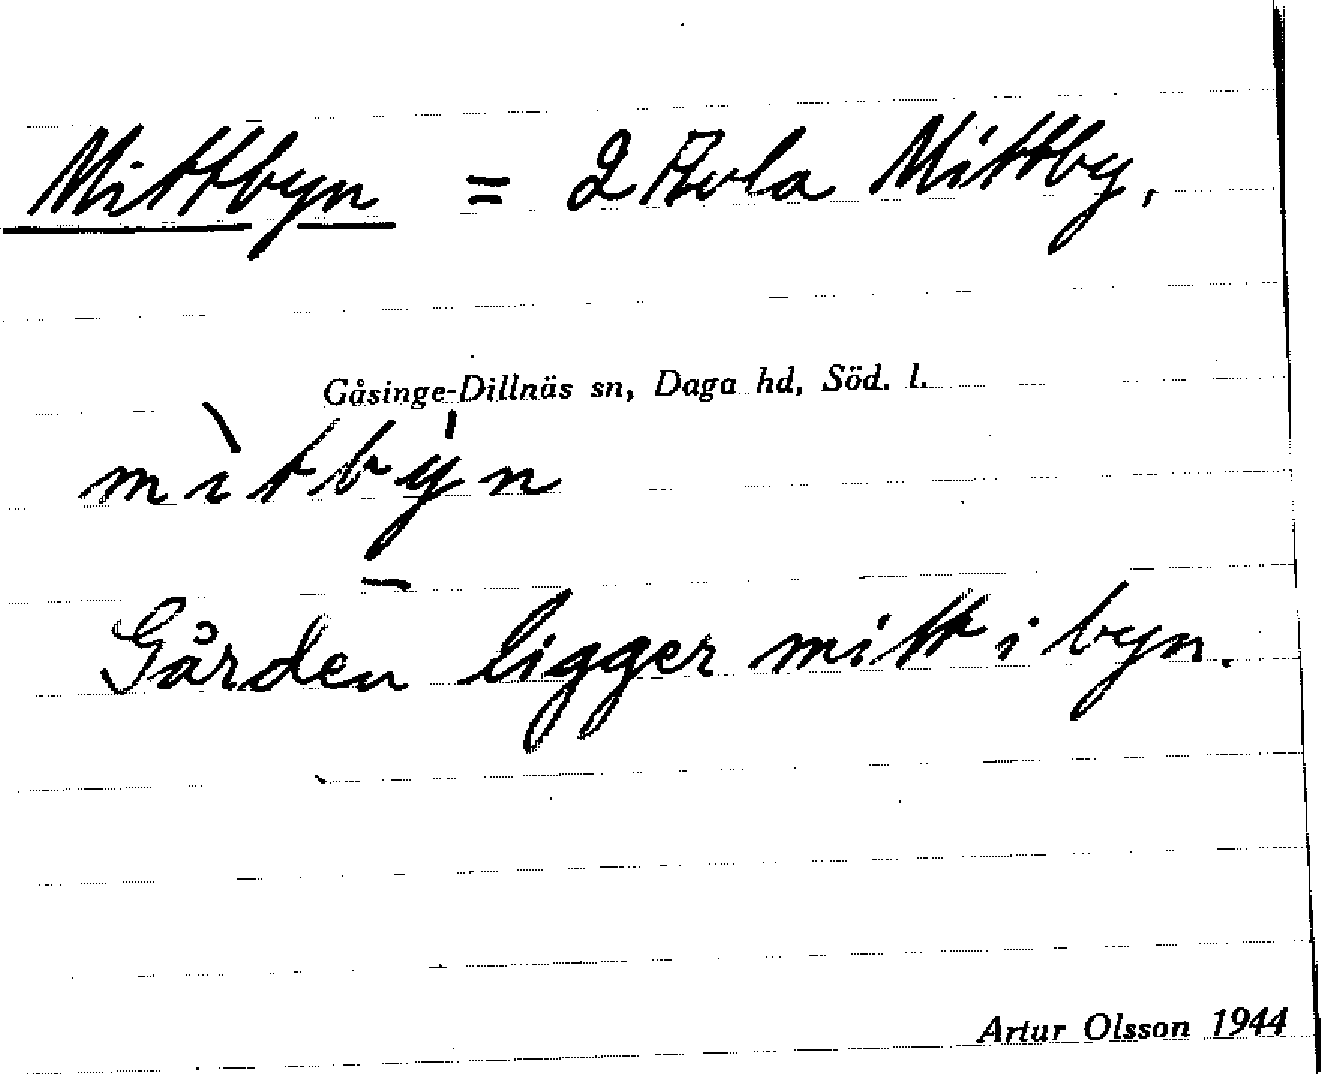 Mittbyn = 2 Avla Mittby,
Gåsinge-Dillnäs sn, Daga hd, Söd. l.
mìtbyn
Gården ligger mitt i byn.
Artur Olsson 1944